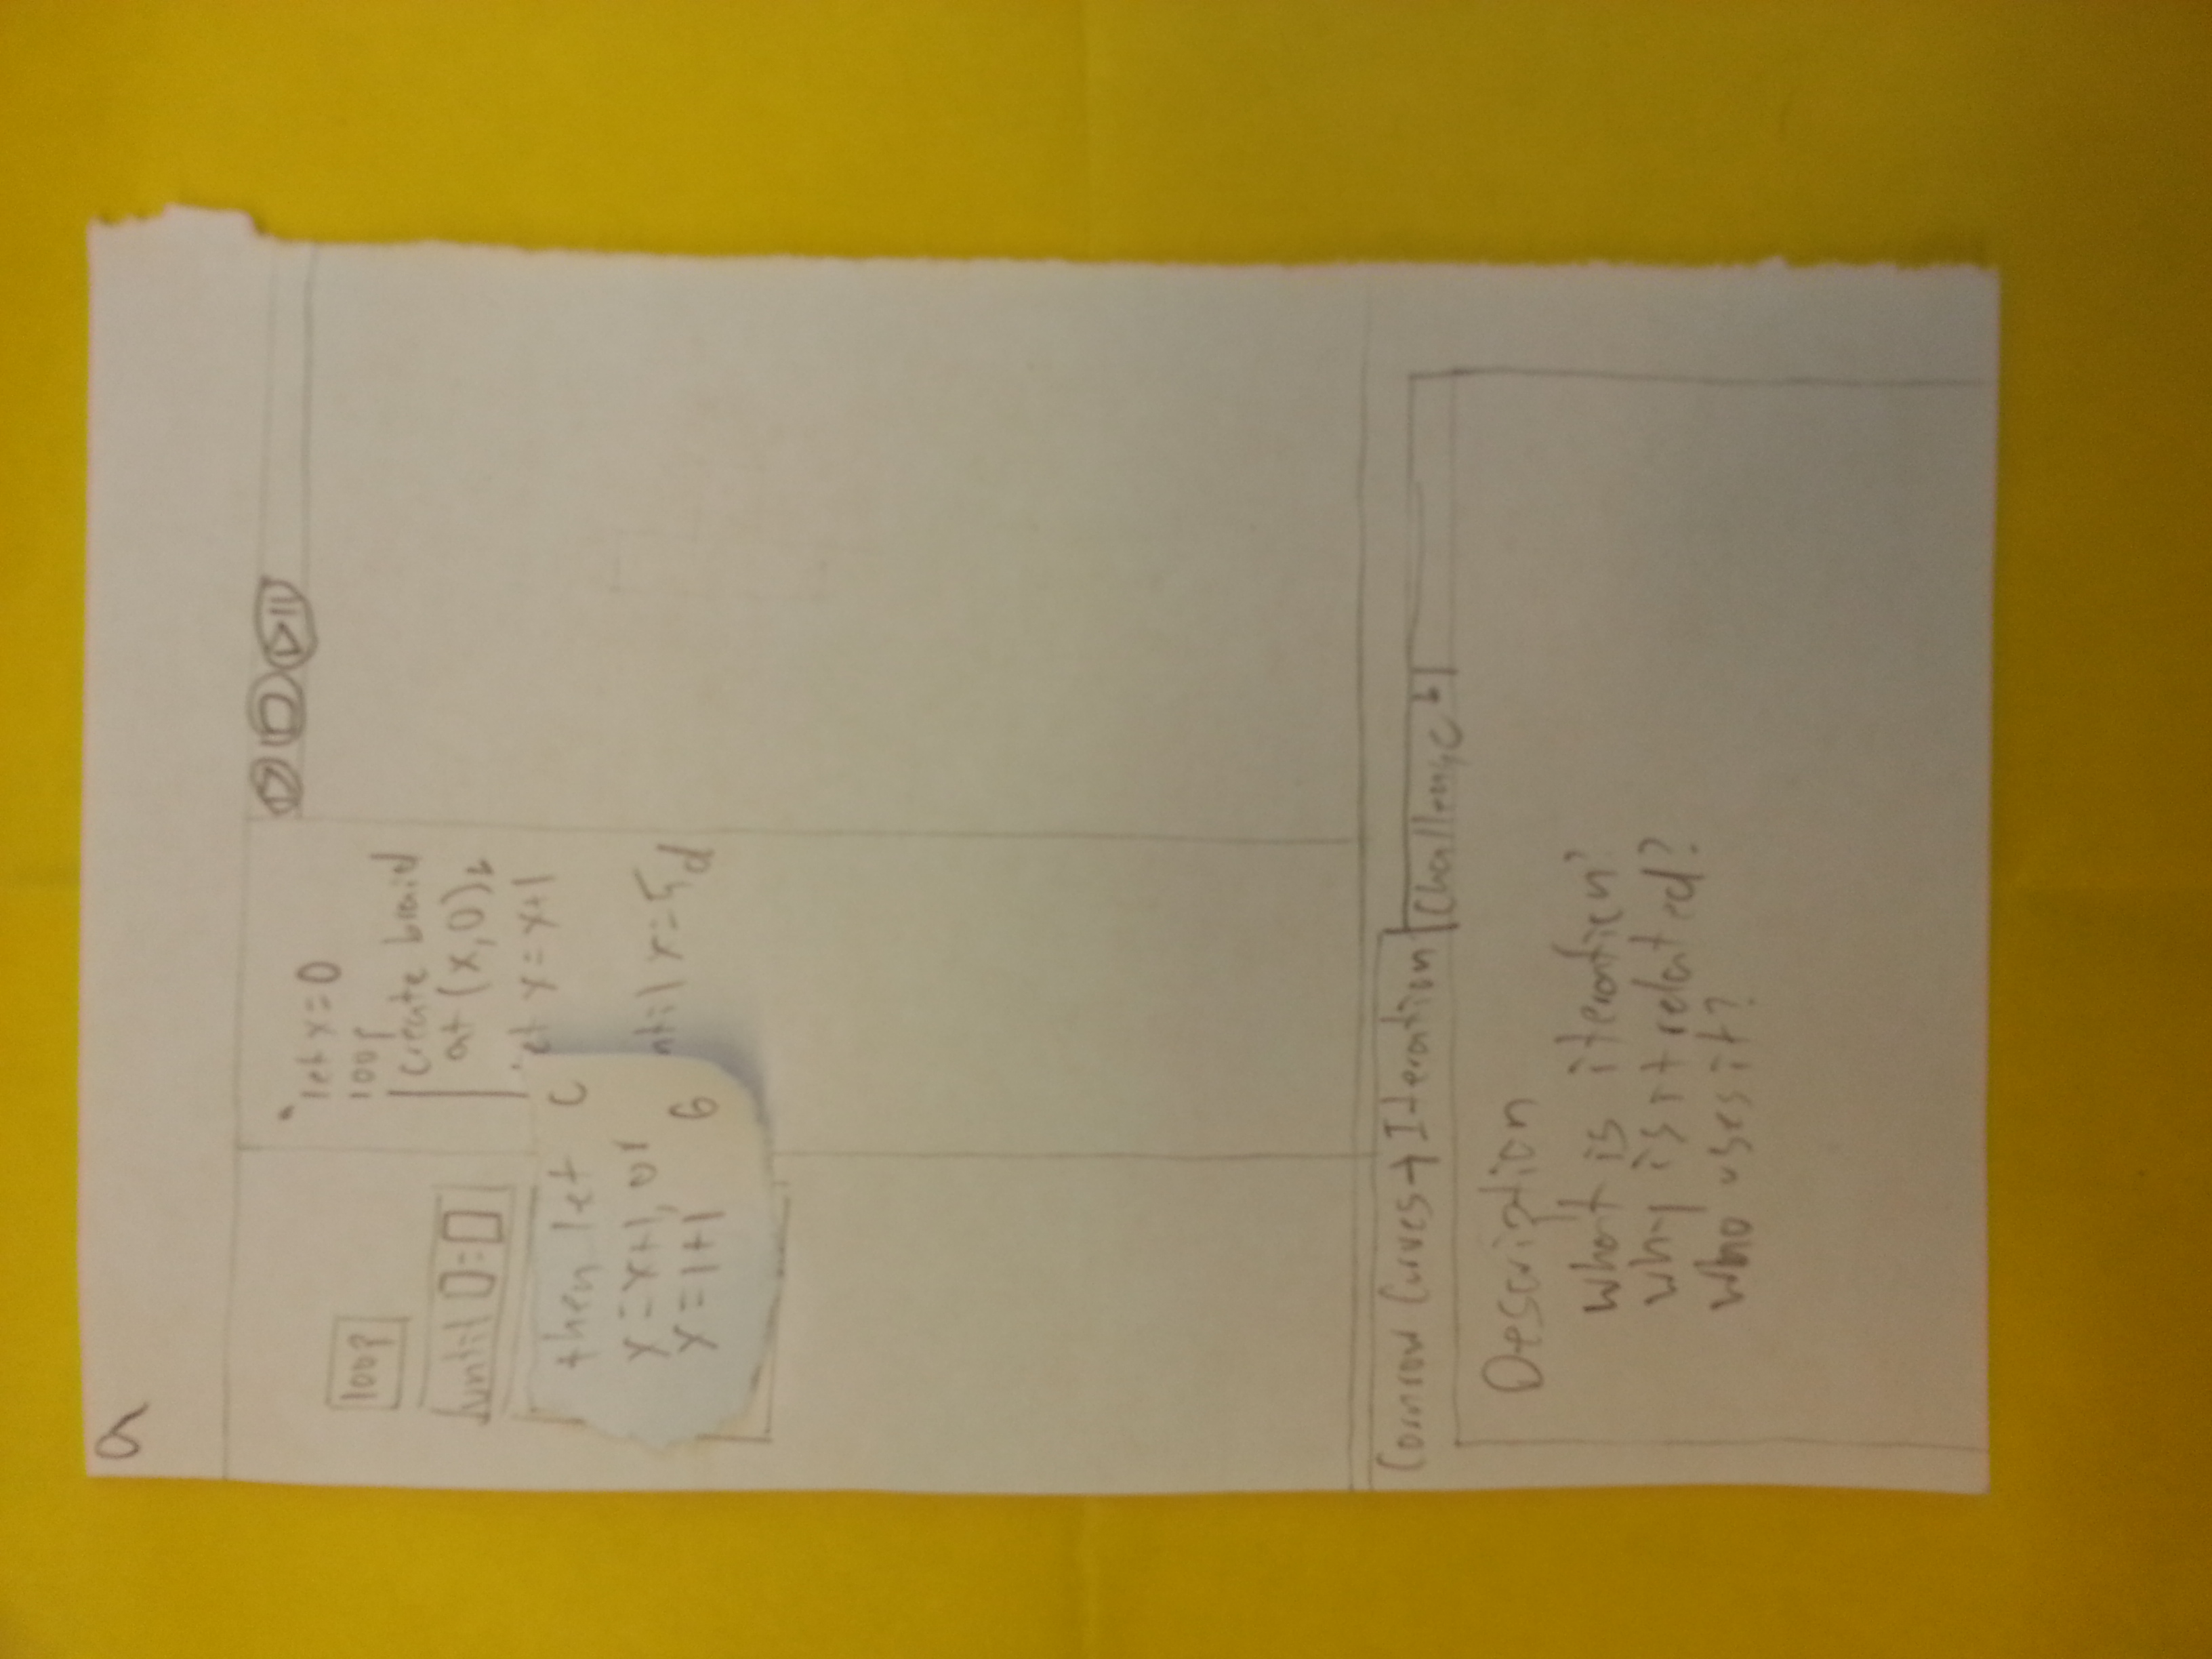 a
loop
until 0=0
then let c
y=x+1, or
y=1+1 6
let x=0
loop
create braid
at (x,0)b
let x=x+1
ntil x=5d
Cornrow Curves → Iteration
Challenge b
Description
What is iteration?
why is it related?
Who uses it?